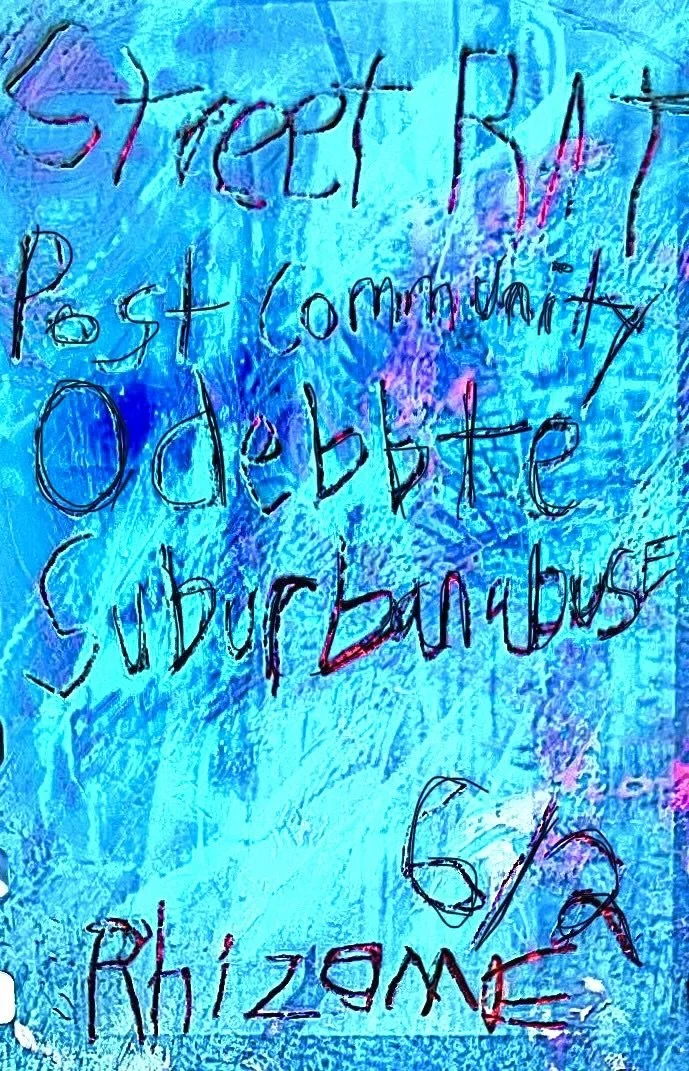 Street RAt
Post Community
Odebbte
SuburbanabusE
6/2
RhizomE